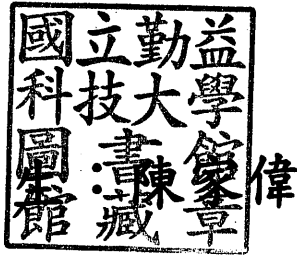 國立勤益
科技大學
圖書館
生：陳 偉
館藏章